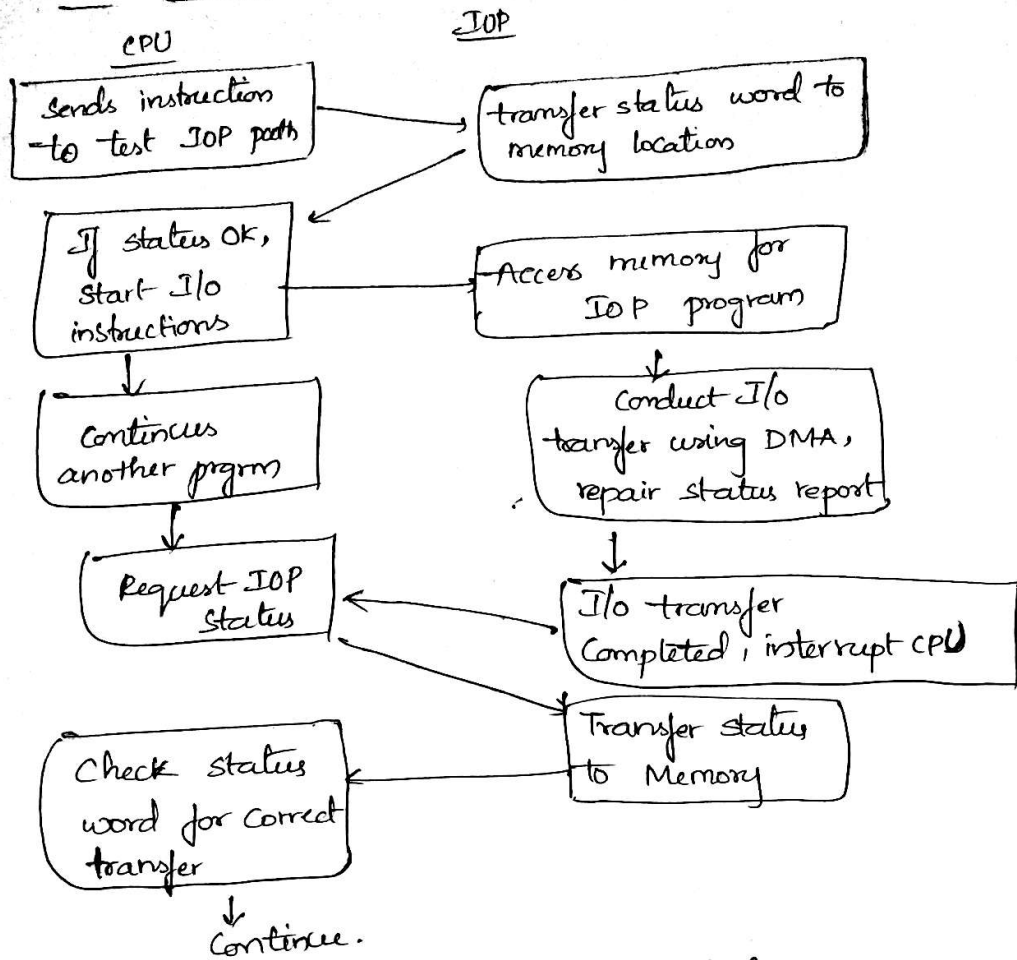 CPU
IOP
Sends instruction
to test IOP path
transfer status word to
memory location
If status OK,
Start I/o
instructions
Access memory for
IOP program
Continues
another prgrm
Conduct I/o
transfer using DMA,
repair status report
Request IOP
Status
I/o transfer
Completed, interrupt CPU
Transfer status
to Memory
Check status
word for correct
transfer
Continue.